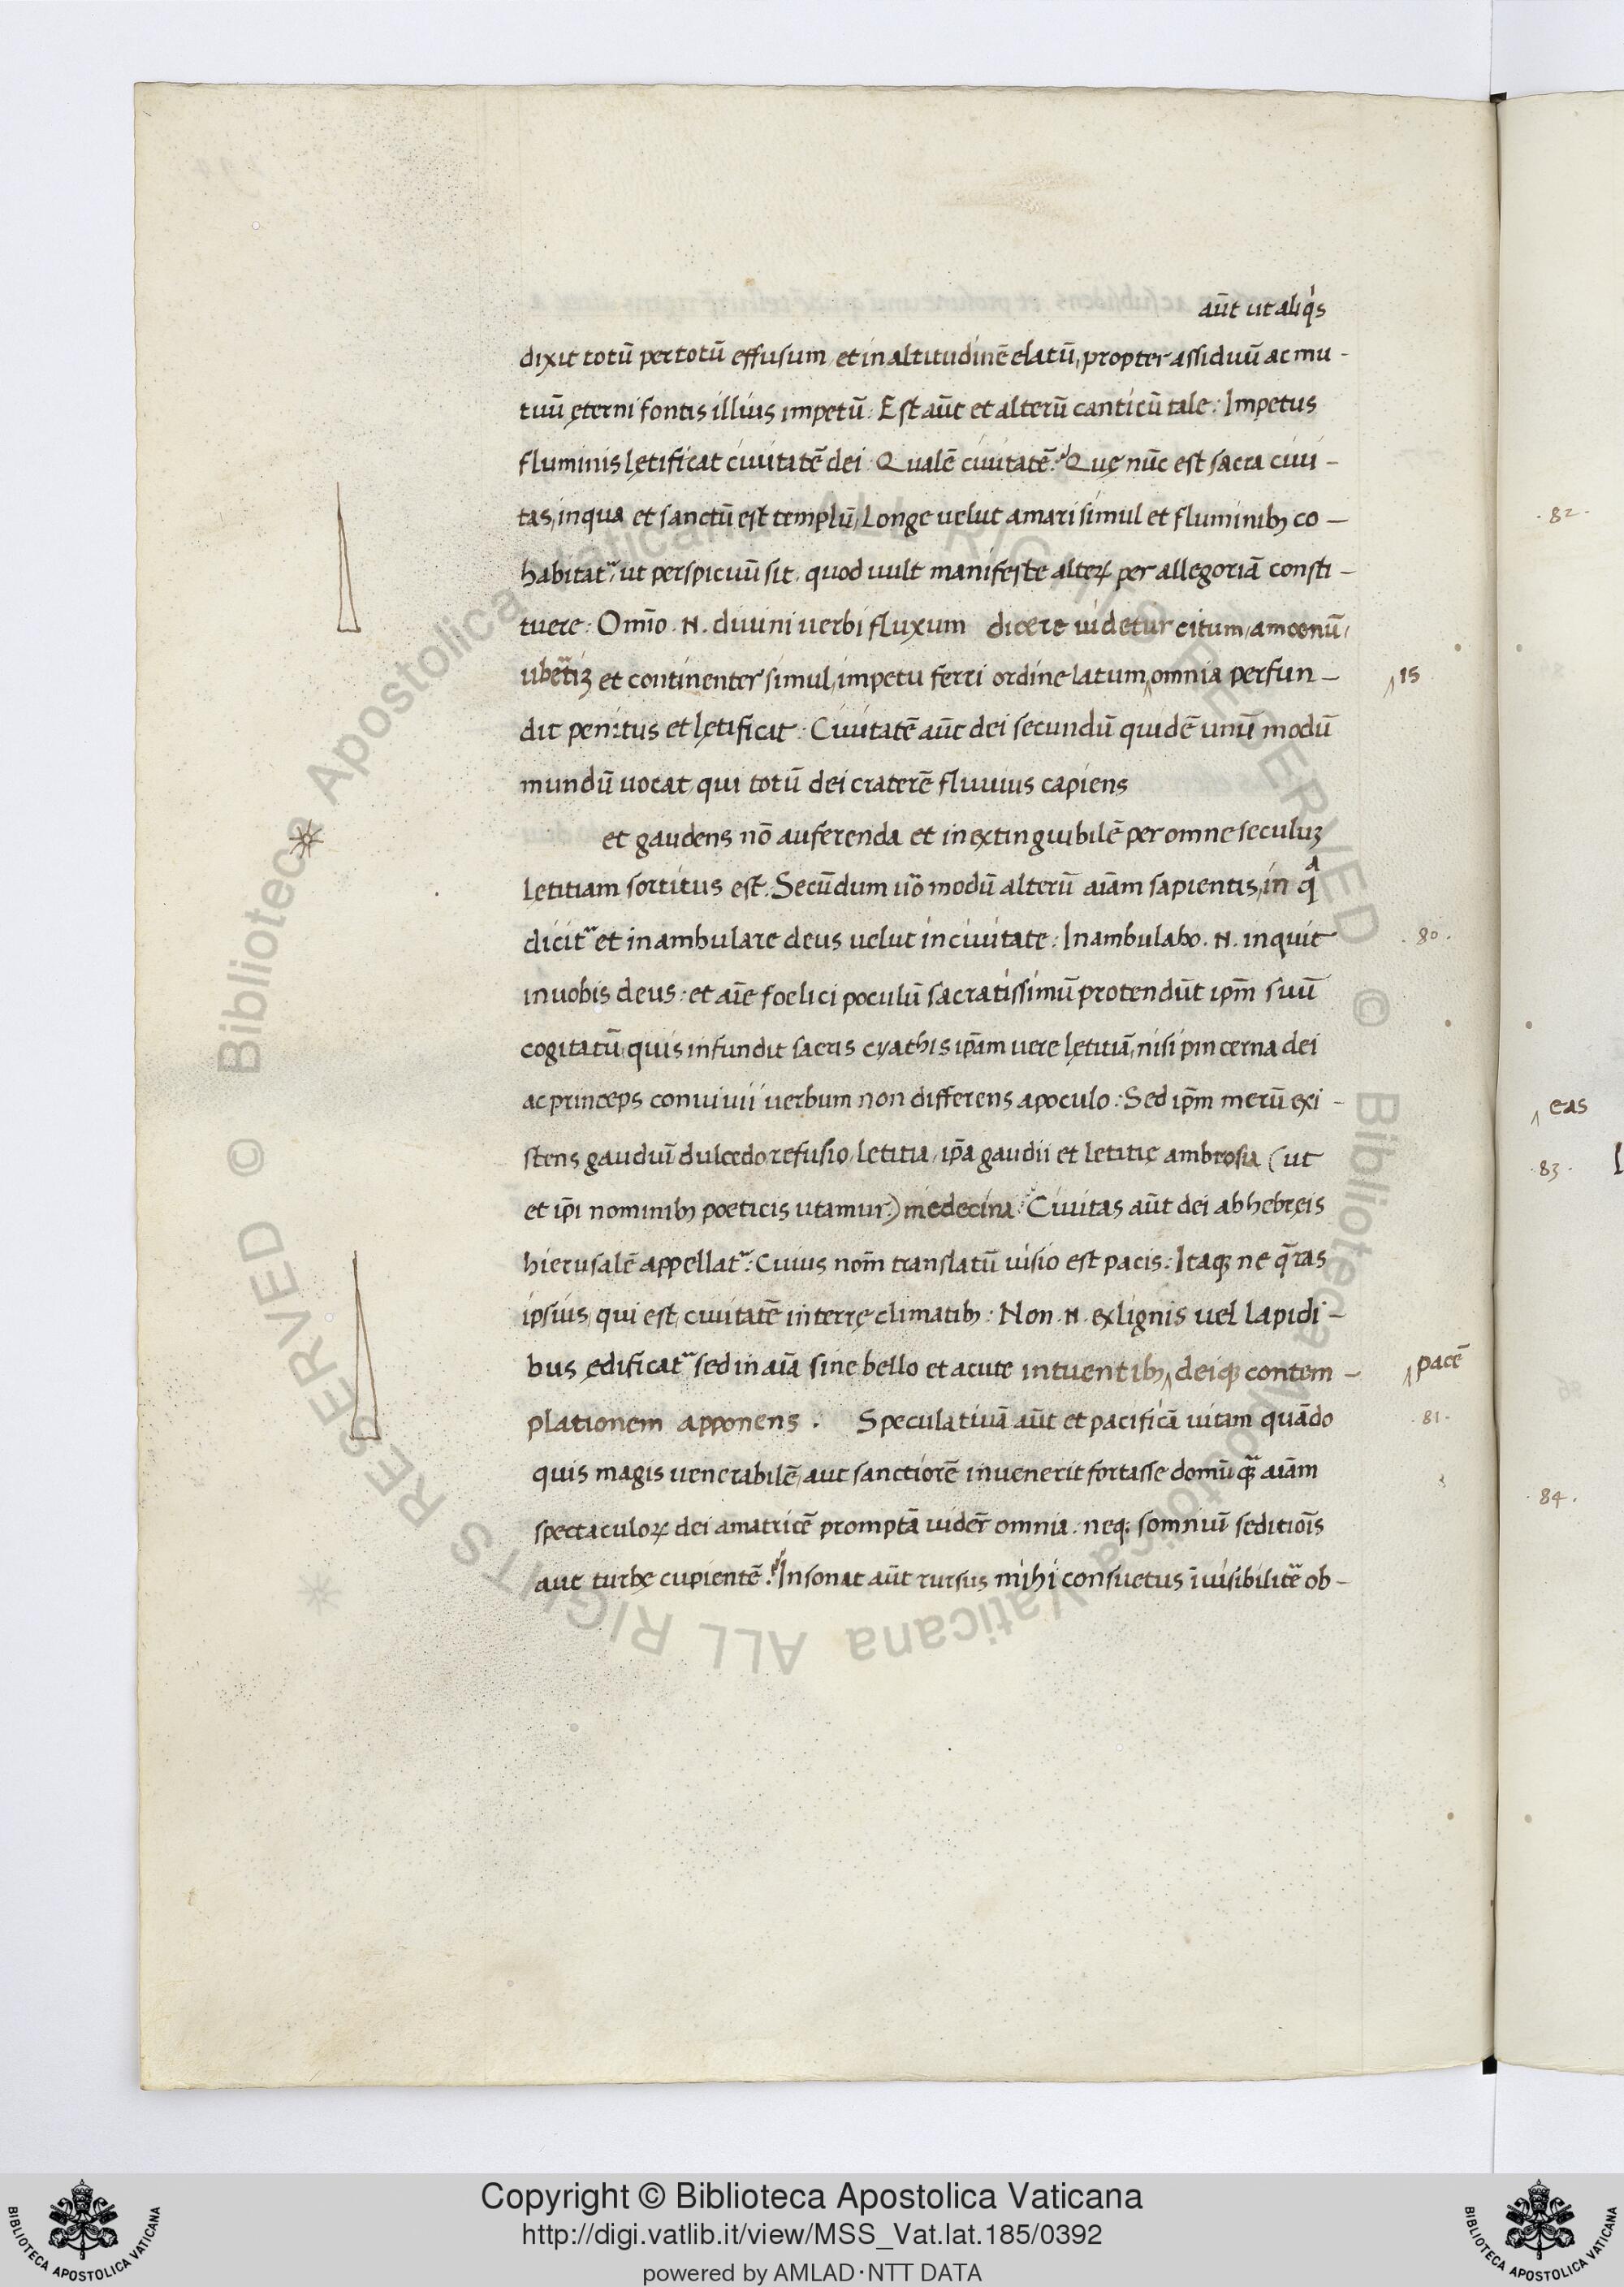 aūt ut aliq̇s
dixit totū per totū effusum et in altitudinē elatū, propter assiduū ac mu-
tuū ęterni fontis illius impetū: Est aūt et alterū canticū tale: Impetus
fluminis lętificat ciuitatē dei. Qualē ciuitatē? Quę nūc est sacra ciui-
tas, in qua et sanctū est templū, Longe uelut a mari simul et fluminibꝫ co-
habitat᷑, ut perspicuū sit. quod uult manifeste alterꝝ per allegoriā consti-
tuere: Om̄io .N. diuini uerbi fluxum dicere uidetur citum, amoenū,
ube᷑tiꝫ et continenter simul, impetu ferri ordine latum omnia perfun-
15
dit penitus et lętificat: Ciuitatē aūt dei secundū quidē unū modū
mundū uocat, qui totū dei craterē fluuius capiens
et gaudens nō auferenda et inextinguibilē per omne seculuꝫ
letitiam sortitus est. Secūdum uo᷑ modū alterū aīam sapientis, in qᵃ
dicit᷑ et inambulare deus uelut in ciuitate: Inambulabo .N. inquit
80.
in uobis deus: et aīe foelici poculū sacratissimū protendūt ip̄m suū
cogitatū, quis infundit sacris cyathis ip̄am uere lętitiā, nisi pincerna dei
ac princeps conuiuii uerbum non differens a poculo: Sed ip̄m merū exi-
stens gauduī dulcedo refusio, letitia, ip̄a gaudii et letitię ambrosia (ut
et ip̄i nominibꝫ poeticis utamur) medecina: Ciuitas aūt dei ab hebręis
hierusalē appellat᷑: Cuius nom̄ translatū uisio est pacis: Itaqꝫ ne q̄ras
ipsius, qui est, ciuitatē in terrę climatibꝫ: Non .N. ex lignis uel lapidi-
bus ędificat᷑ sed in aīa sine bello et acute intuentibꝫ, deiqꝫ contem-
pacē
plationem apponens. Speculatiuā aūt et pacificā uitam quādo
.81.
quis magis uenerabilē, aut sanctiorē inuenerit fortasse domū qᷓꝫ aīam
spectaculorꝝ dei amatricē promptā uider̄ omnia. neqꝫ somniū seditiōis
aut turbę cupientē? Insonat aūt rursus mihi consuetus īuisibilite᷑ ob-
.82.
eas
.83.
.84.
Copyright © Biblioteca Apostolica Vaticana
http://digi.vatlib.it/view/MSS_Vat.lat.185/0392
powered by AMLAD·NTT DATA
BIBLIOTECA APOSTOLICA VATICANA
BIBLIOTECA APOSTOLICA VATICANA
© Biblioteca Apostolica Vaticana ALL RIGHTS RESERVED
© Biblioteca Apostolica Vaticana ALL RIGHTS RESERVED